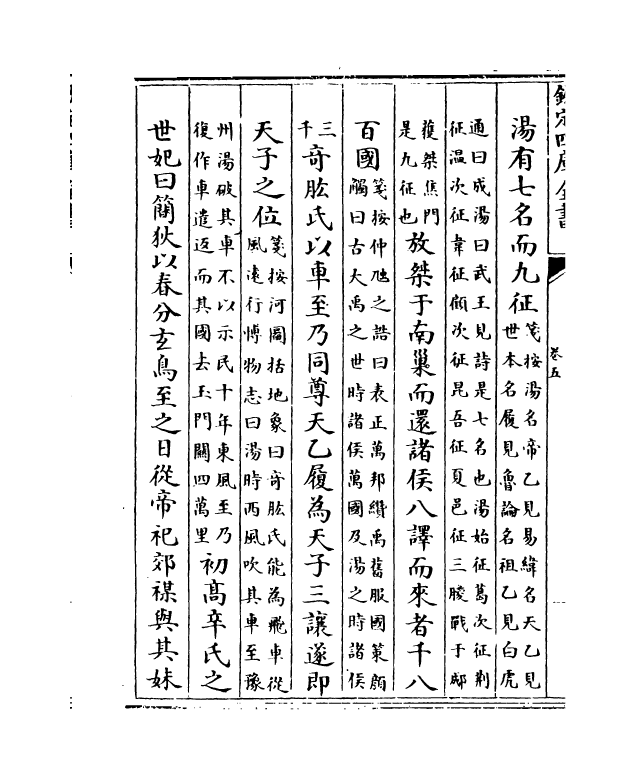 欽定四庫全書
卷五
湯有七名而九征
箋按湯名帝乙見易緯名天乙見
世本名履見魯論名祖乙見白虎
通曰成湯曰武王見詩是七名也湯始征葛次征荆
征温次征韋征顧次征昆吾征夏邑征三朡戰于郕
獲桀焦門
是九征也
放桀于南巢而還諸侯八譯而來者千八
百國
箋按仲虺之誥曰表正萬邦纘禹舊服國策顔
觸曰古大禹之世時諸侯萬國及湯之時諸侯
三
千
奇肱氏以車至乃同尊天乙履為天子三讓遂即
天子之位
箋按河圖括地象曰奇肱氏能為飛車從
風逺行博物志曰湯時西風吹其車至豫
州湯破其車不以示民十年東風至乃
復作車遣返而其國去玉門關四萬里
初高辛氏之
世妃曰簡狄以春分玄鳥至之日從帝祀郊禖與其妹